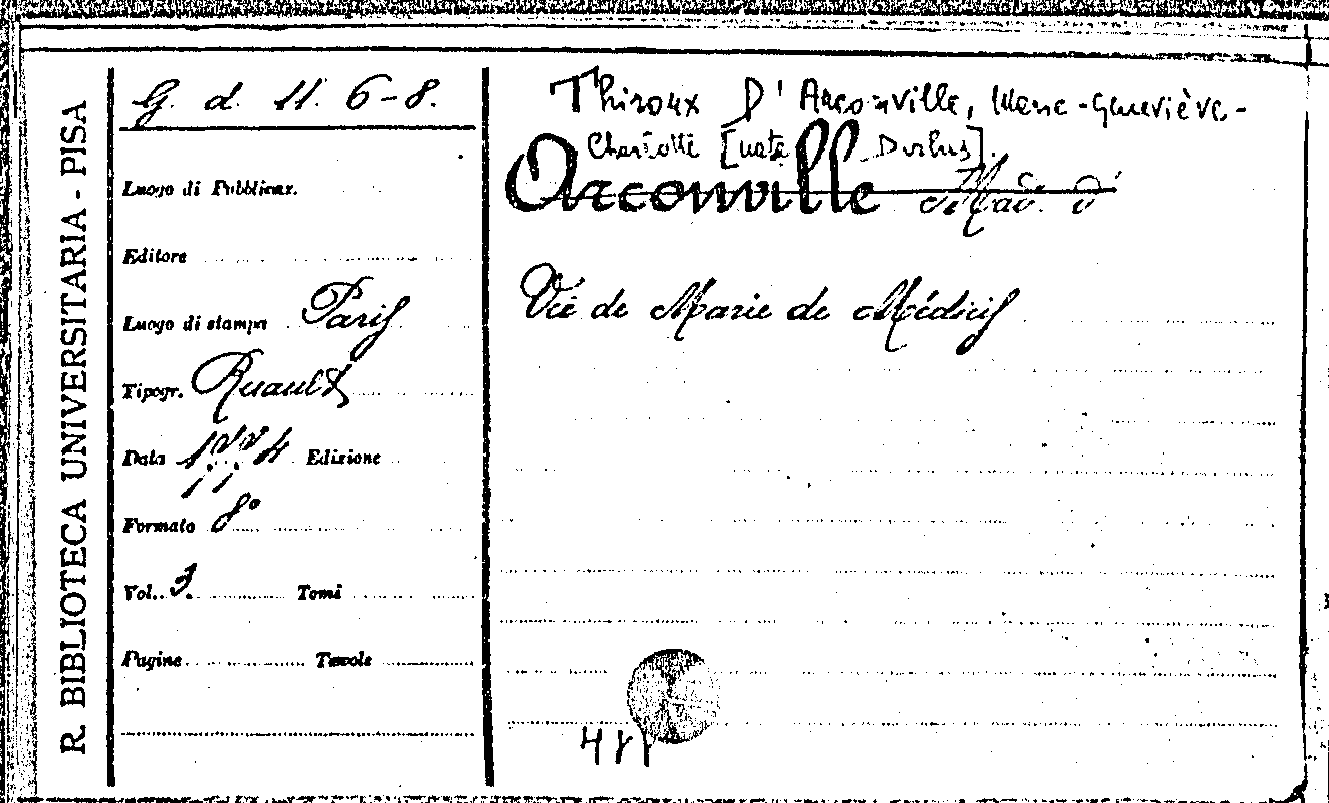 R. BIBLIOTECA UNIVERSITARIA - PISA
G. d. 11. 6-8.
Luogo di Pubblicaz.
Editore
Luogo di stampa Paris
Tipogr. Ruault
Data 1774 Edizione
Formato 8°
Vol. 3. Tomi
Pagine Tavole
Thiroux D'Arconville, Marie-Geneviève-
Charlotte [nata Darlus].
Arconville Mad. d'
Vie de Marie de Médicis